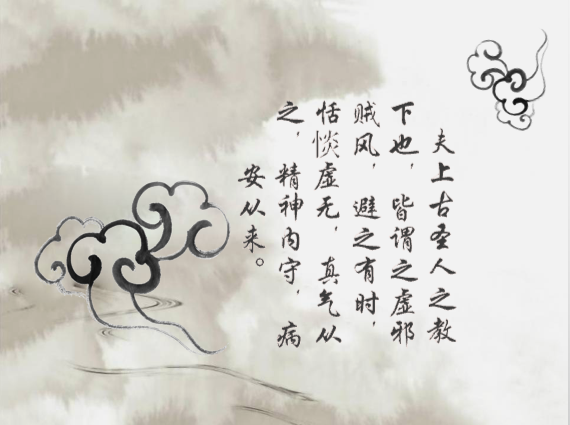 夫上古圣人之教
下也，皆谓之虚邪
贼风，避之有时，
恬惔虚无，真气从
之，精神内守，病
安从来。